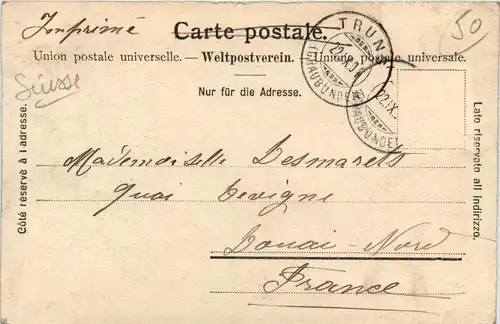 Imprimé
Carte postale.
50
Union postale universelle. — Weltpostverein. — Unione postale universale.
Nur für die Adresse.
Suisse
Côté réservé à l'adresse.
Lato riservato all indirizzo.
TRUNS
(GRAUBÜNDEN)
22.IX.
(GRAUBÜNDEN)
Mademoiselle Desmarets
Quai Devigne
Douai - Nord
France